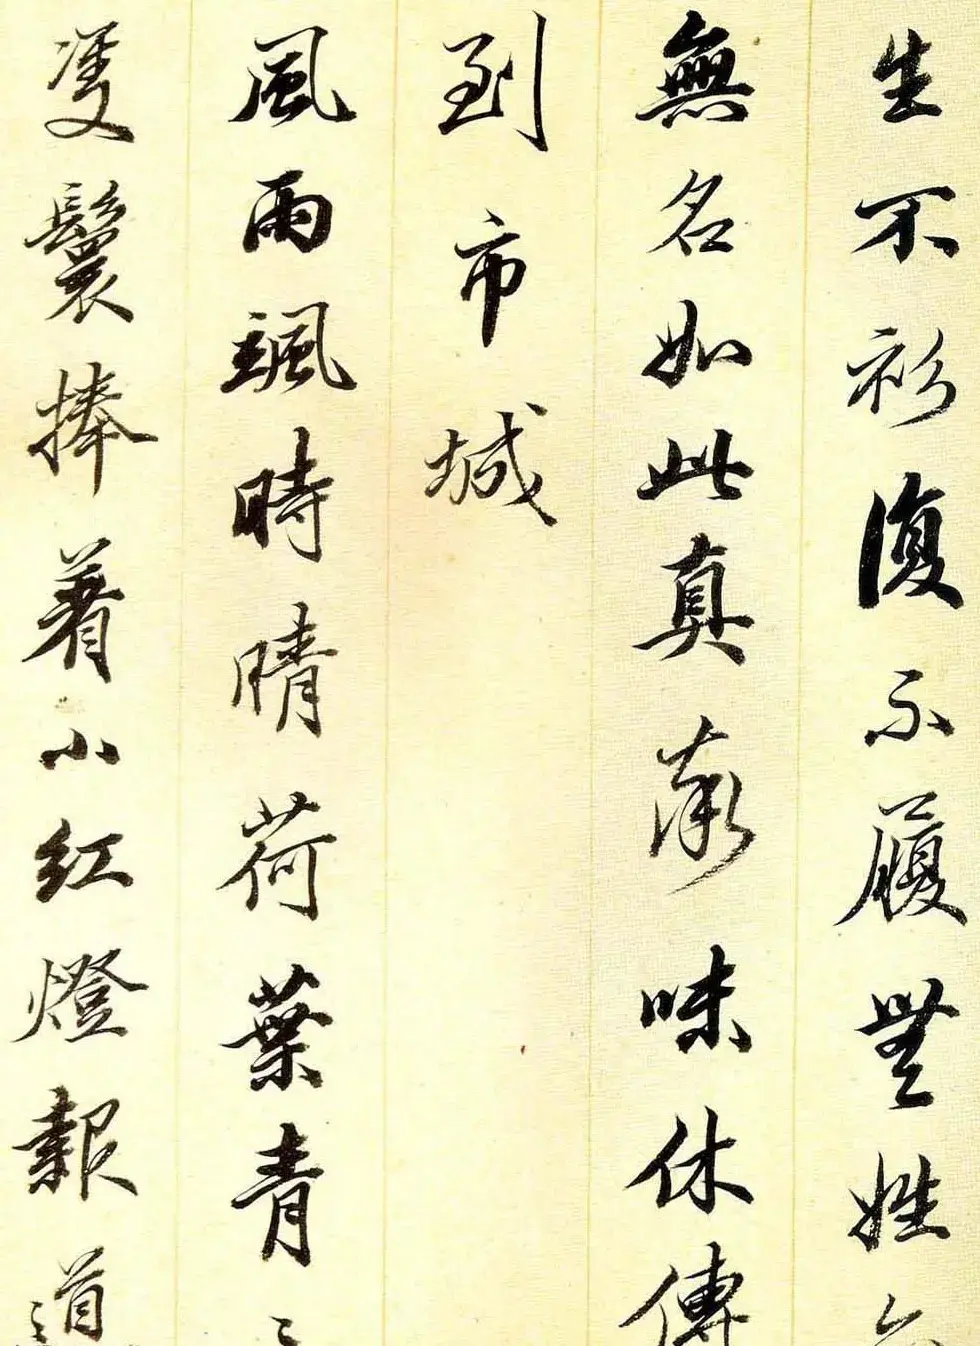 生不衫復不履無姓
無名如此真味休傳
到市城
風雨颯時晴荷葉青
雙鬟捧着小紅燈報道